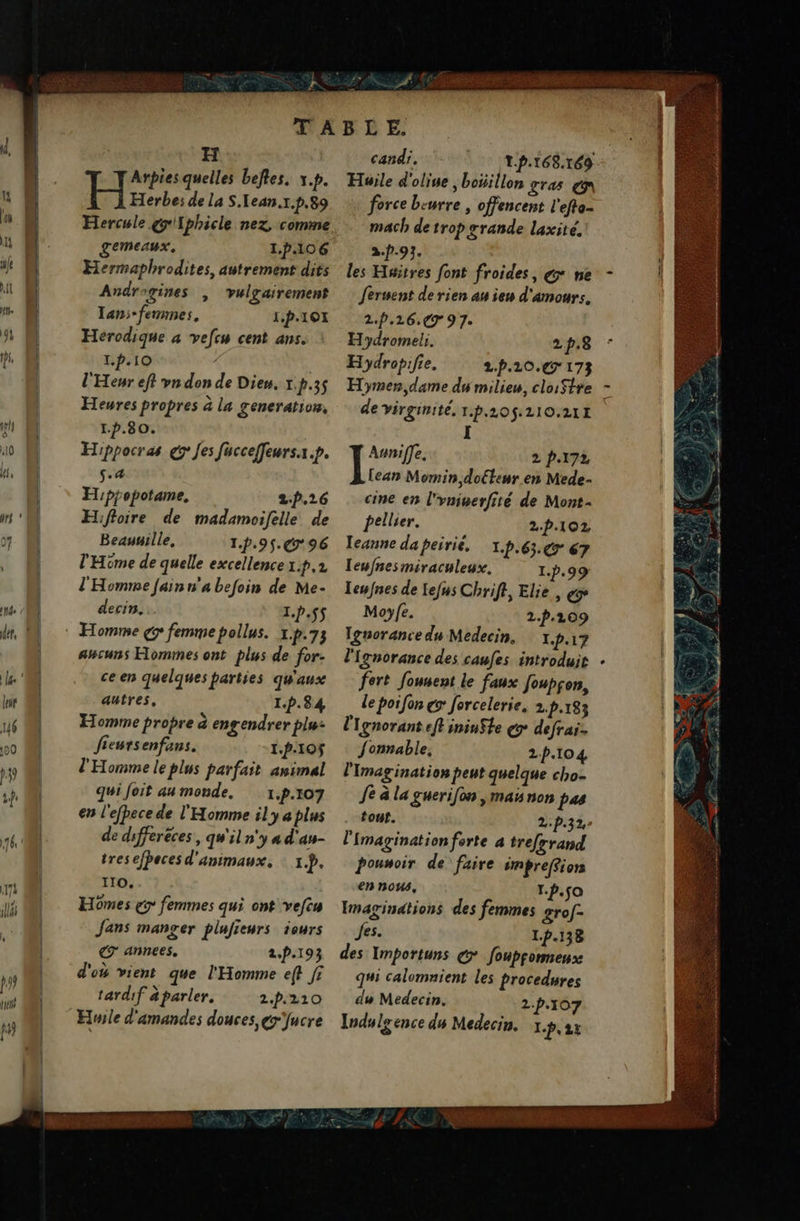 TABLE.
H
HArpies quelles bestes. 1.p.
Herbes de la S.Iean.1.p.89
Hercule & Iphicle nez, comme
gemeaux, 1.p.106
Hermaphrodites, autrement dits
Androgines , vulgairement
Tans-femmes, 1.p.101
Herodique a vescu cent ans.
1.p.10
l'Heur est vn don de Dieu. 1.p.35
Heures propres à la generation,
1.p.80.
Hippocras & ses successeurs.1.p.
5.a
Hippopotame, 2.p.26
Histoire de madamoiselle de
Beauuille, 1.p.95.& 96
l'Hõme de quelle excellence 1.p.2
l'Homme sain n'a besoin de Me-
decin, 1.p.55
Homme & femme pollus. 1.p.73
aucuns Hommes ont plus de for-
ce en quelques parties qu'aux
autres, 1.p.84
Homme propre à engendrer plu-
sieurs enfans. 1.p.105
l'Homme le plus parfait animal
qui soit au monde. 1.p.107
en l'espece de l'Homme il y a plus
de differẽces, qu'il n'y a d'au-
tres especes d'animaux. 1.p.
110.
Hõmes & femmes qui ont vescu
sans manger plusieurs iours
& annees, 2.p.193
d'où vient que l'Homme est si
tardif à parler. 2.p.220
Huile d'amandes douces, & sucre
candi. 1.p.168.169
Huile d'oliue , boüillon gras &
force beurre , offencent l'esto-
mach de trop grande laxité.
2.p.93.
les Huitres sont froides, & ne
seruent de rien au ieu d'amours,
2.p.26.& 97.
Hydromeli. 2.p.8
Hydropisie. 2.p.20.& 173
Hymen, dame du milieu, cloistre
de virginité. 1.p.205.210.211
I
IAunisse. 2 p.172
Iean Momin, docteur en Mede-
cine en l'vniuersité de Mont-
pellier. 2.p.102
Ieanne da peirié, 1.p.63.& 67
Ieusnes miraculeux. 1.p.99
Ieusnes de Iesus Christ, Elie , &
Moyse. 2.p.209
Ignorance du Medecin, 1.p.17
l'Ignorance des causes introduit
fort souuent le faux soupçon,
le poison & sorcelerie. 2.p.183
l'Ignorant est iniuste & desrai-
sonnable, 2.p.104
l'Imagination peut quelque cho-
se à la guerison , mais non pas
tout. 2.p.32
l'Imagination forte a tresgrand
pouuoir de faire impression
en nous, 1.p.50
Imaginations des femmes gros-
ses. 1.p.138
des Importuns & soupçonneux
qui calomnient les procedures
du Medecin, 2.p.107
Indulgence du Medecin. 1.p.21